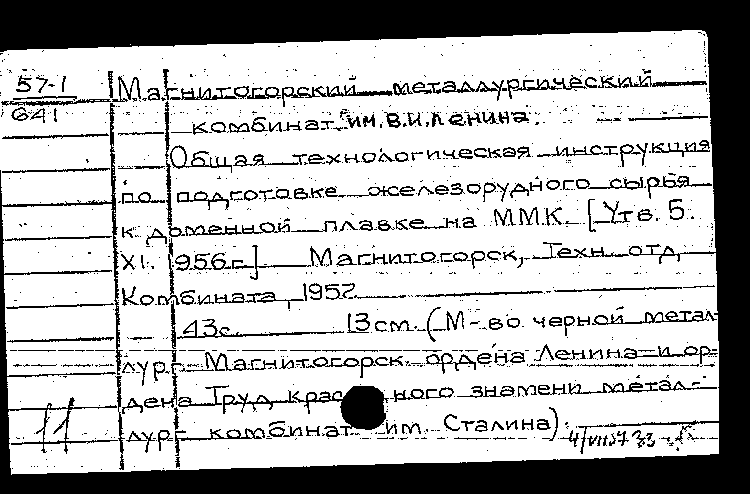 57-1
641
Магнитогорский металлургический
комбинат им. В.И. Ленина.
Общая технологическая инструкция
по подготовке железорудного сырья
к доменной плавке на ММК. [Утв. 5.
XI. 1956 г.] Магнитогорск, Техн. отд.
Комбината, 1957
43с. 13см. (М-во черной метал-
лург. Магнитогорск. ордена Ленина и ор-
дена Труд. Крас ного знамени метал-
лург. комбинат им. Сталина).
11